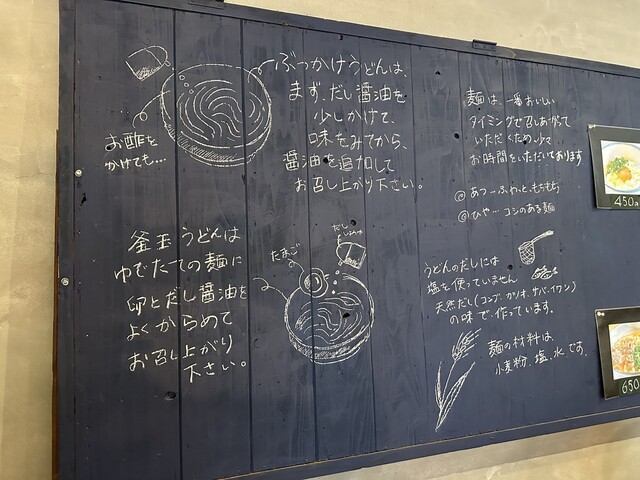 ぶっかけうどんは、
まず、だし醤油を
少しかけて、
味をみてから、
醤油を追加して
お召し上がり下さい。
お酢を
かけても…
釜玉うどんは
ゆでたての麺に
卵とだし醤油を
よくからめて
お召し上がり
下さい。
たまご
だし
麺は、一番おいしい
タイミングで召しあがって
いただくため、少々
お時間をいただいております
◎あつ…ふわっと、もちもち
◎ひや…コシのある麺
うどんのだしには
塩を使っていません
天然だし(コンブ、カツオ、サバ、イワシ)
の味で、作っています。
麺の材料は、
小麦粉、塩、水です。
450円
650